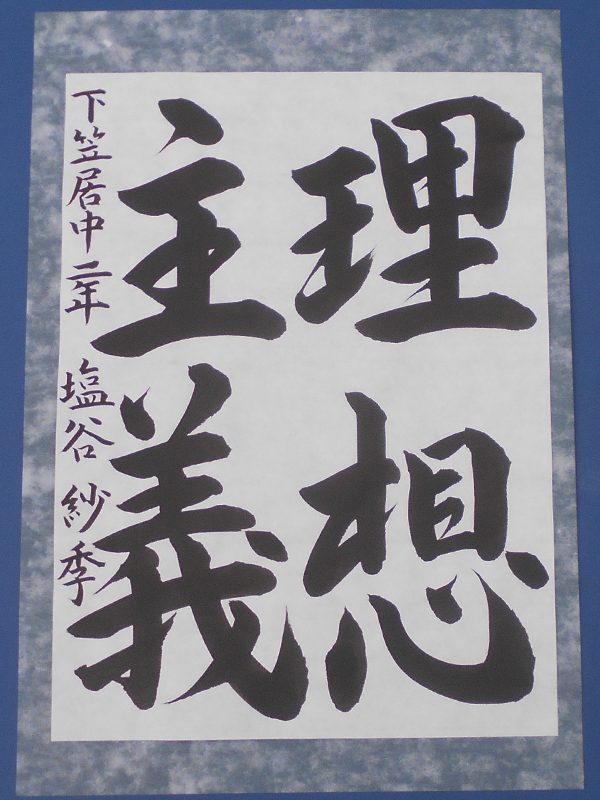 理想
主義
下笠居中二年 塩谷紗季